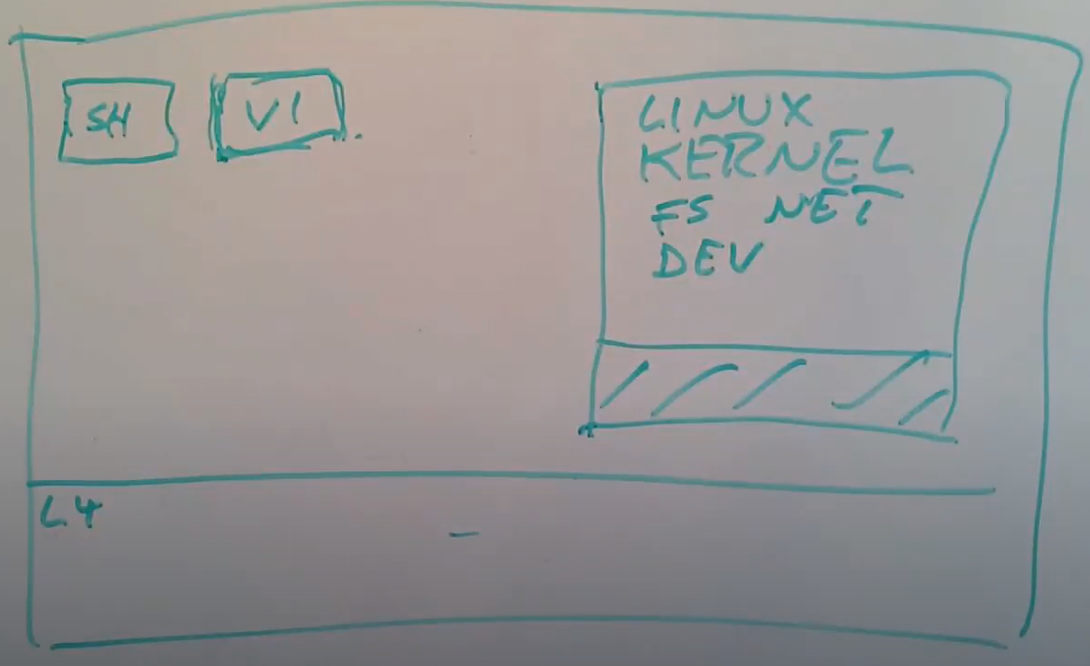 SH VI
LINUX
KERNEL
FS NET
DEV
L4